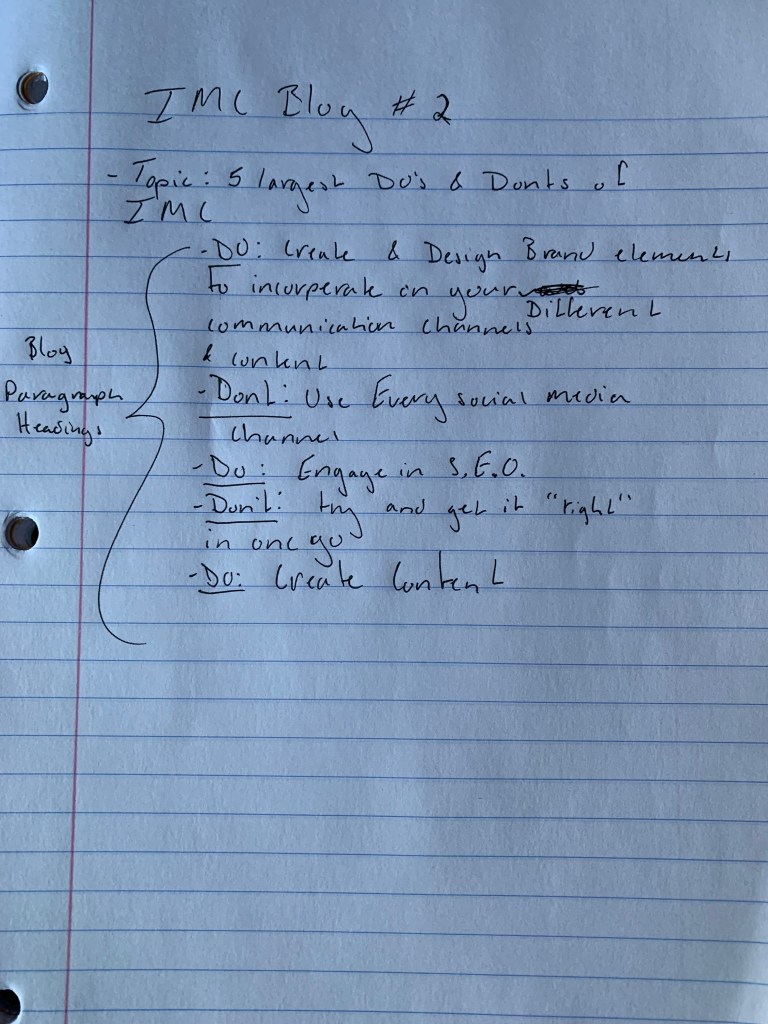 IMC Blog # 2
- Topic: 5 largest Do's & Donts of
IMC
- DO: Create & Design Brand elements
To incorperate on your
Different
communication channels
& content
- Dont: Use Every social media
channel
- Do: Engage in S.E.O.
- Don't: try and get it "right"
in one go
- Do: Create Content
Blog
Paragraph
Headings